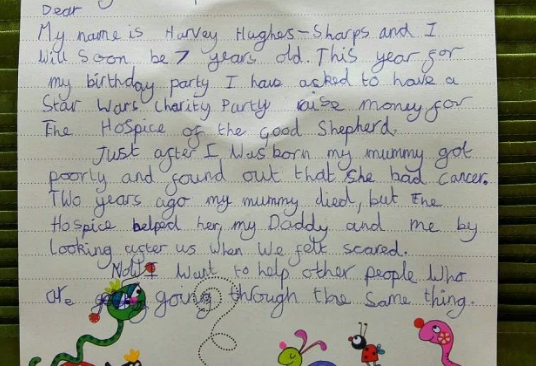 Dear
My name is Harvey Hughes-Sharps and I
Will Soon be 7 years old. This year for
my birthday party I have asked to have a
Star Wars Charity Party raise money for
The Hospice of the Good Shepherd.
Just after I Was born my mummy got
poorly and found out that She had cancer.
Two years ago my mummy died, but The
Hospice helped her, my Daddy and me by
Looking after us when We felt scared.
Now I Want to help other people Who
are going through the same thing.